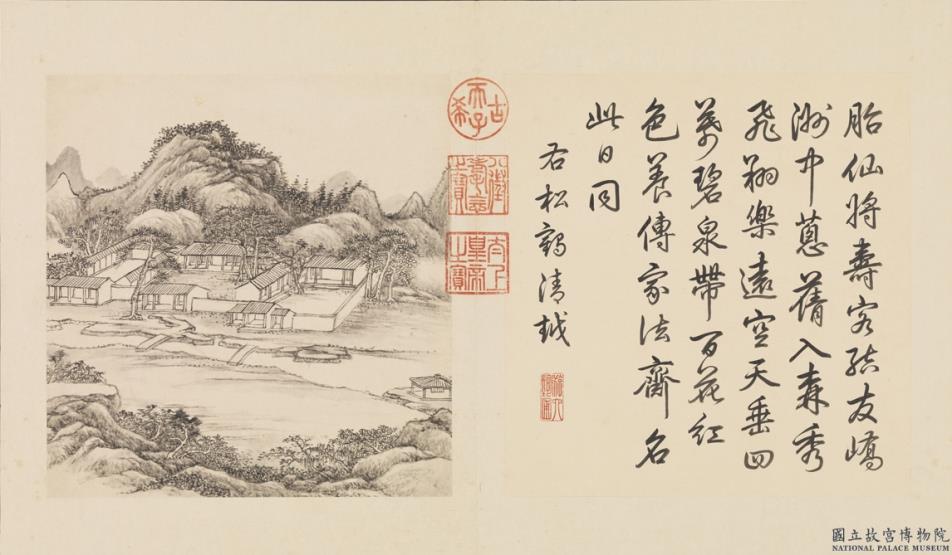 胎仙將壽客結友嶠
洲中蔥蒨入森秀
飛翔樂遠空天垂四
萬碧泉帶百花紅
色養傳家法齋名
此日同
右松鶴清越
古希天子
八徵耄念之寶
太上皇帝之寶
國立故宮博物院
NATIONAL PALACE MUSEUM